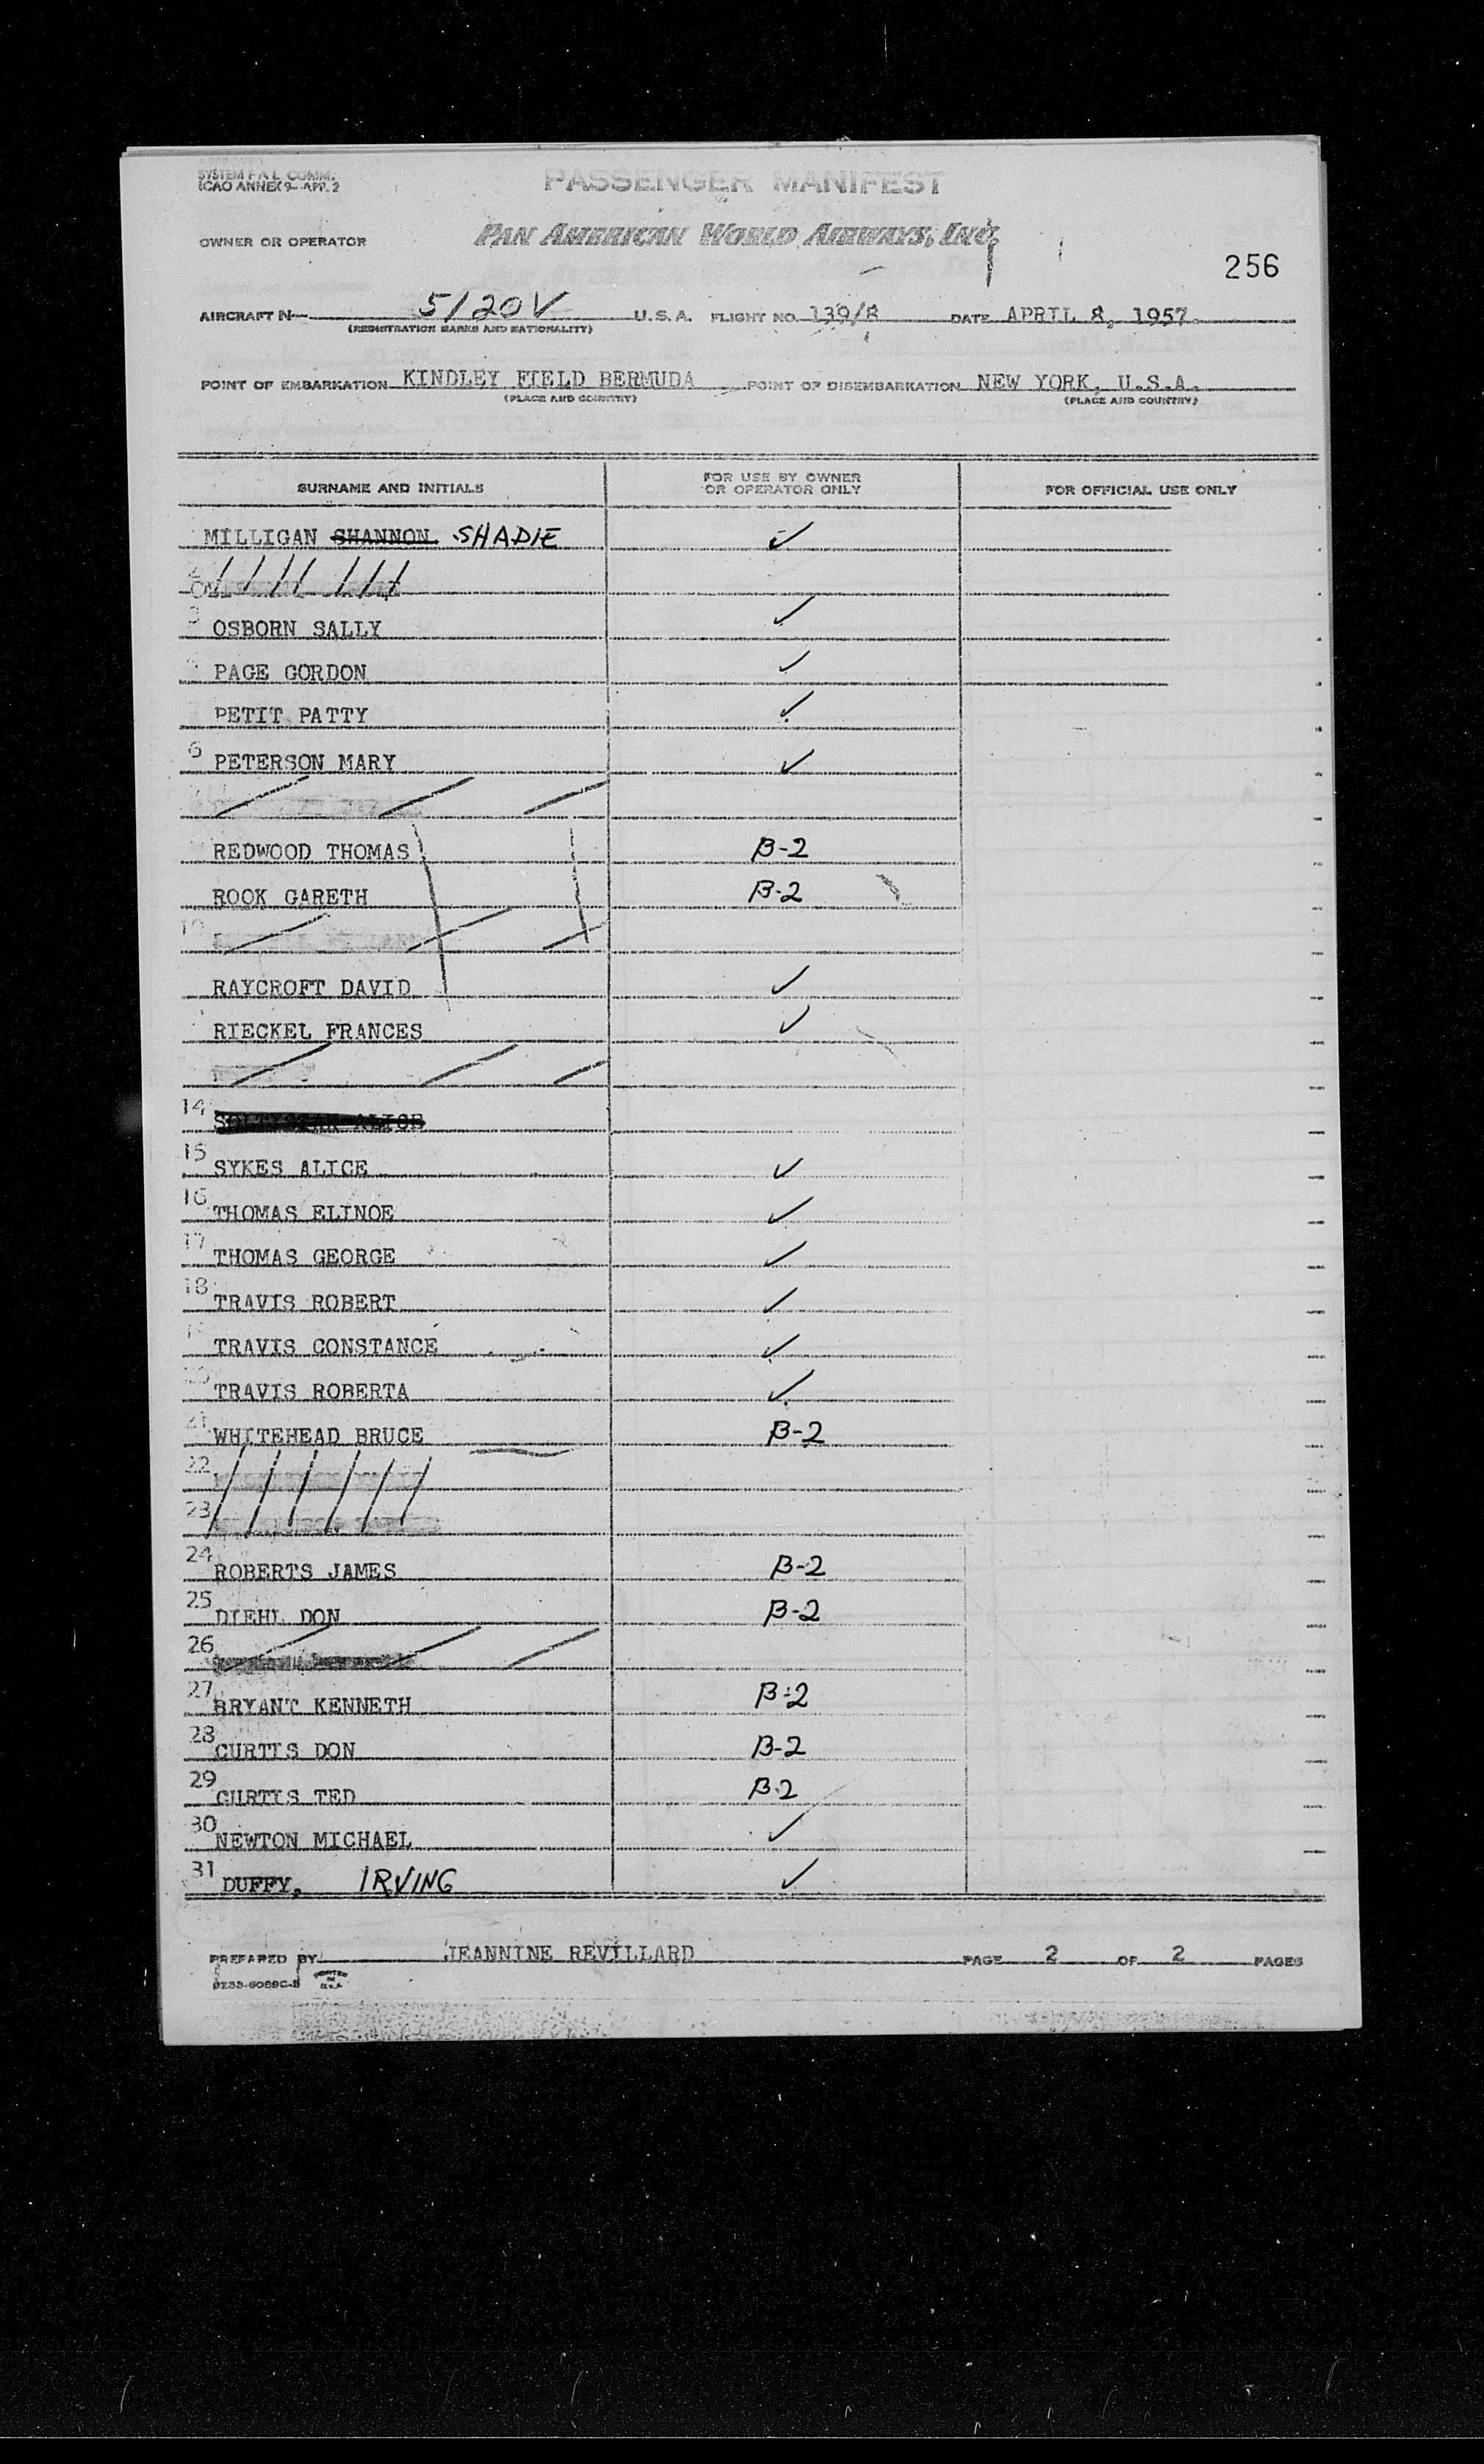 SYSTEM F A L COMM.
ICAO ANNEX 9—APP. 2
PASSENGER MANIFEST
OWNER OR OPERATOR PAN AMERICAN WORLD AIRWAYS, INC.
256
AIRCRAFT N— 5120V U.S.A. FLIGHT NO. 139/8 DATE APRIL 8, 1957
(REGISTRATION MARKS AND NATIONALITY)
POINT OF EMBARKATION KINDLEY FIELD BERMUDA POINT OF DISEMBARKATION NEW YORK, U.S.A.
(PLACE AND COUNTRY) (PLACE AND COUNTRY)
SURNAME AND INITIALS FOR USE BY OWNER OR OPERATOR ONLY FOR OFFICIAL USE ONLY
MILLIGAN SHANNON SHADIE ✓
3 OSBORN SALLY ✓
PAGE GORDON ✓
PETIT PATTY ✓
6 PETERSON MARY ✓
REDWOOD THOMAS B-2
ROOK GARETH B-2
10
RAYCROFT DAVID ✓
RIECKEL FRANCES ✓
14 ALICE
15 SYKES ALICE ✓
16 THOMAS ELINOE ✓
17 THOMAS GEORGE ✓
18 TRAVIS ROBERT ✓
TRAVIS CONSTANCE ✓
TRAVIS ROBERTA ✓
21 WHITEHEAD BRUCE B-2
22
23
24 ROBERTS JAMES B-2
25 DIEHL DON B-2
26
27 BRYANT KENNETH B-2
28 CURTIS DON B-2
29 CURTIS TED B-2
30 NEWTON MICHAEL ✓
31 DUFFY, IRVING ✓
PREPARED BY JEANNINE REVILLARD PAGE 2 OF 2 PAGES
PRINTED IN U.S.A.